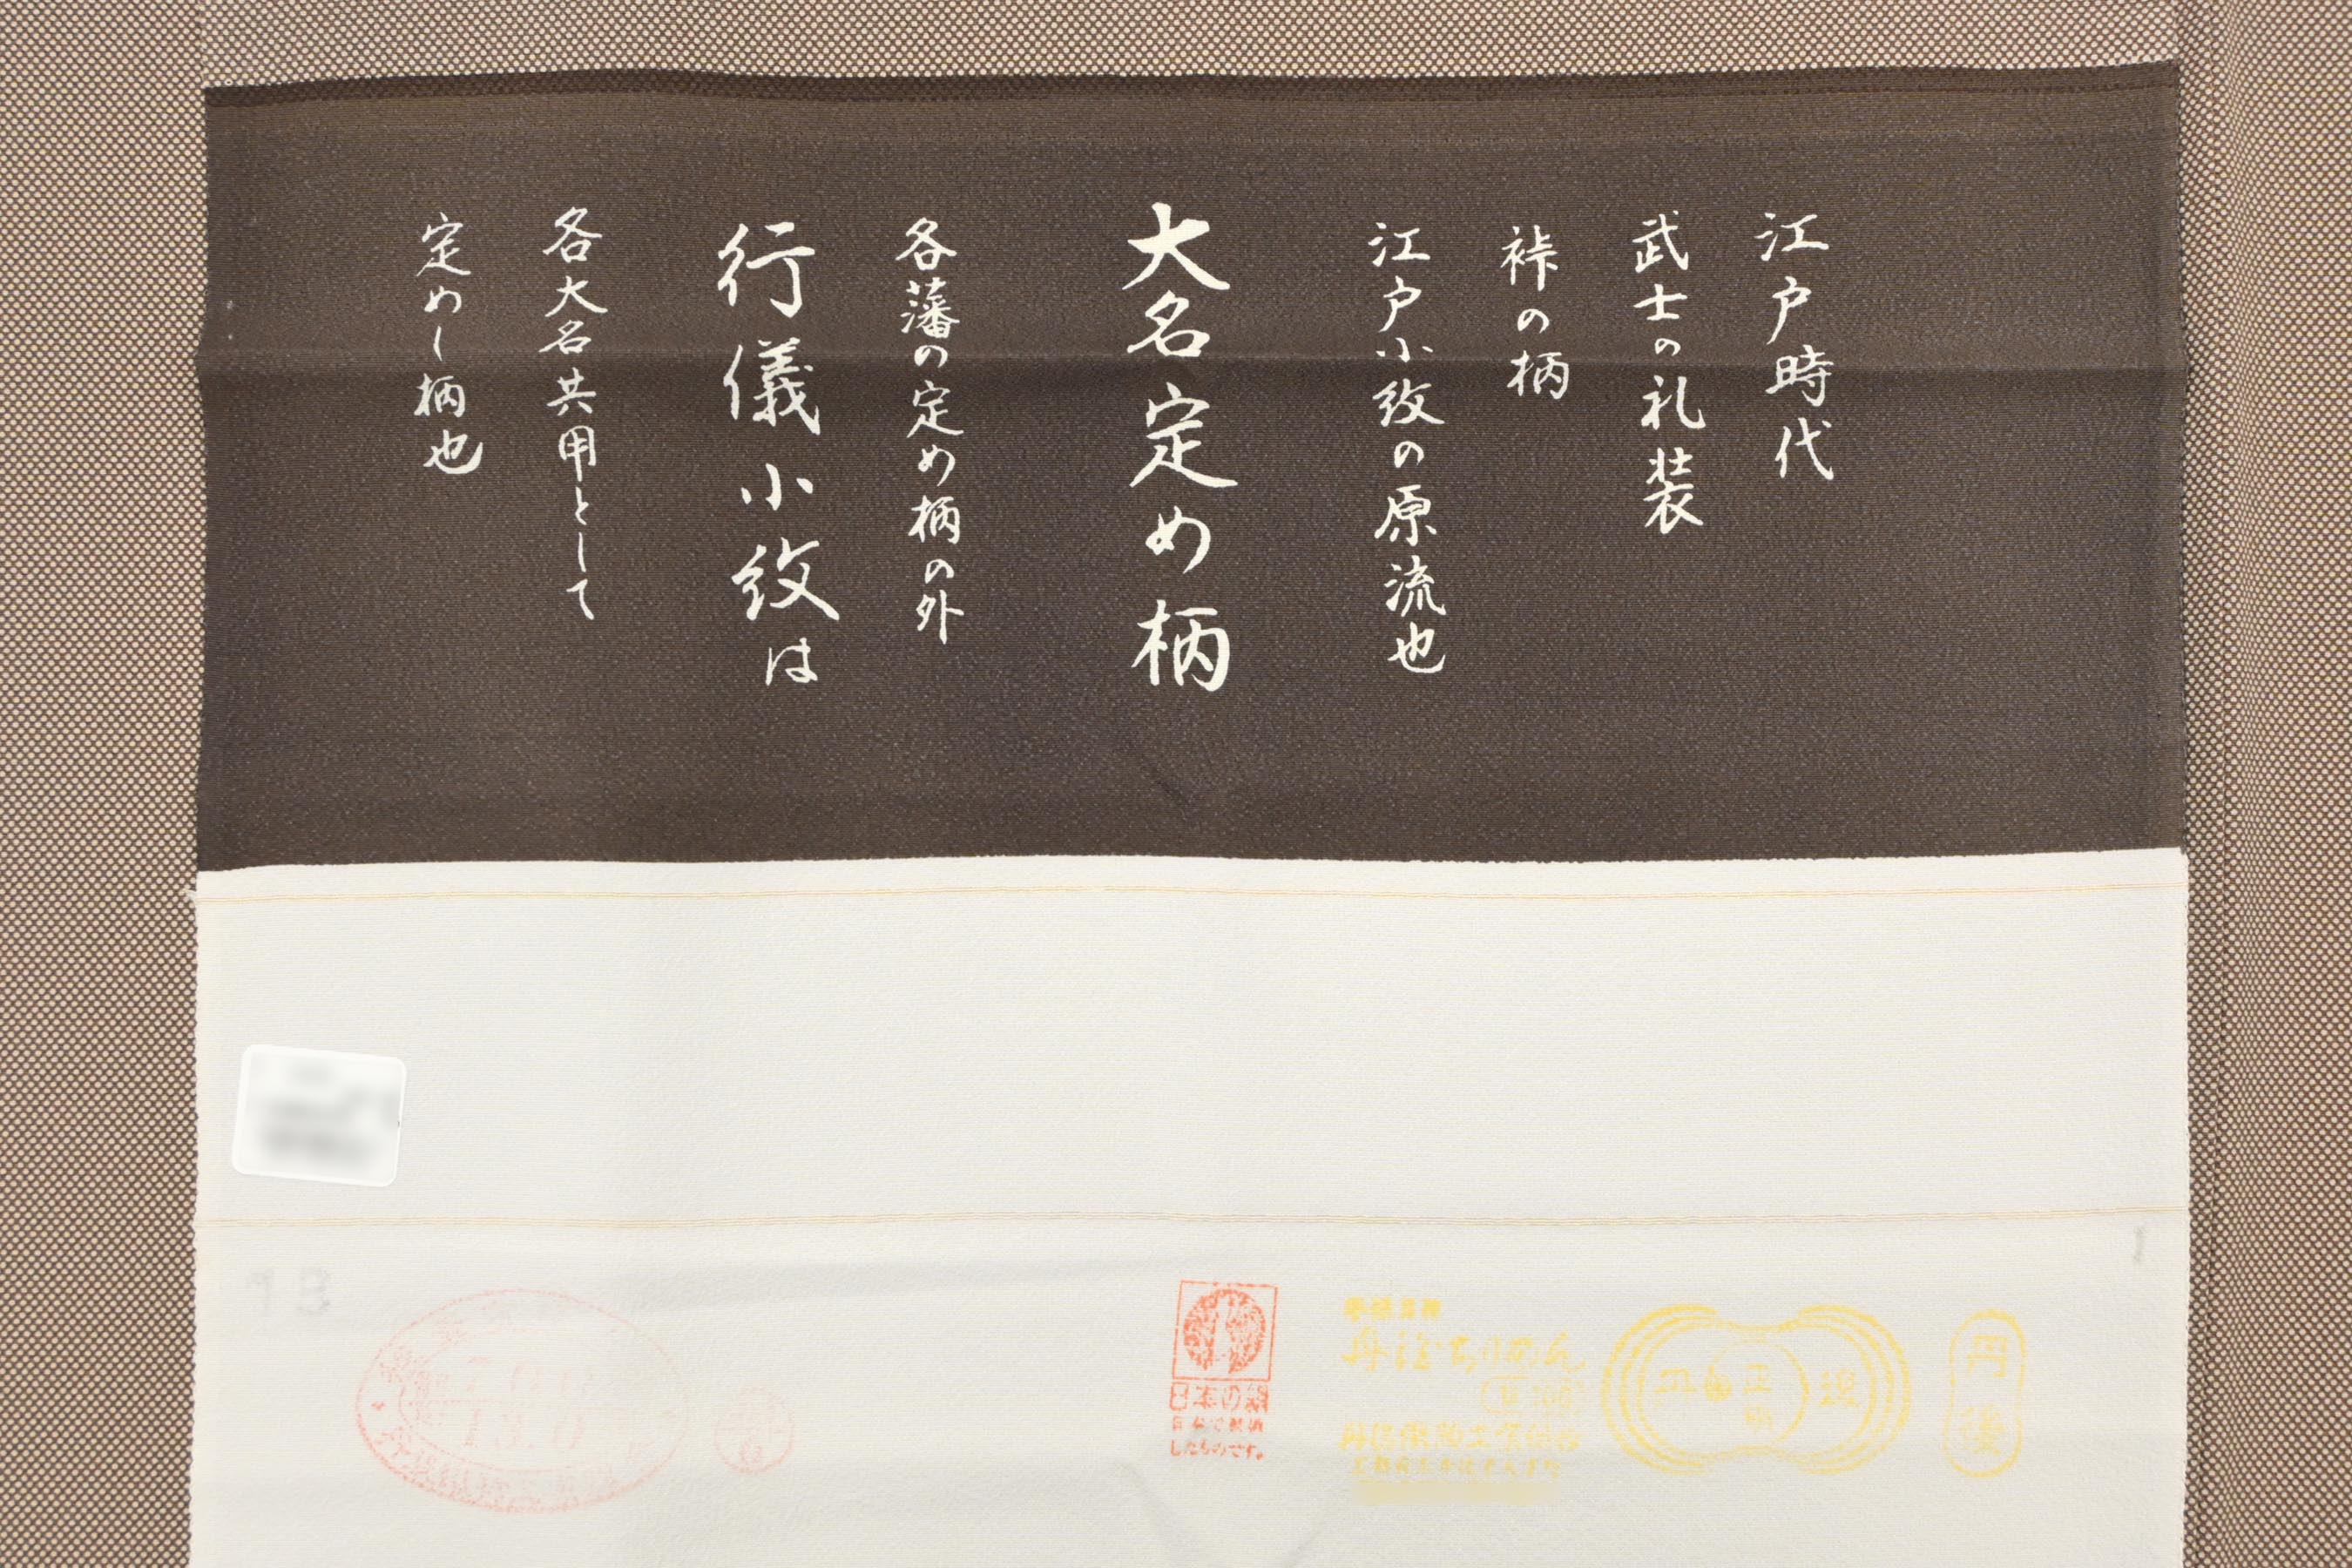 江戸時代
武士の礼装
裃の柄
江戸小紋の原流也
大名定め柄
各藩の定め柄の外
行儀小紋は
各大名共用として
定めし柄也
13
日本の絹
日本で製織
したものです。
丹後ちりめん
丹後織物工業組合
正
丹後
1